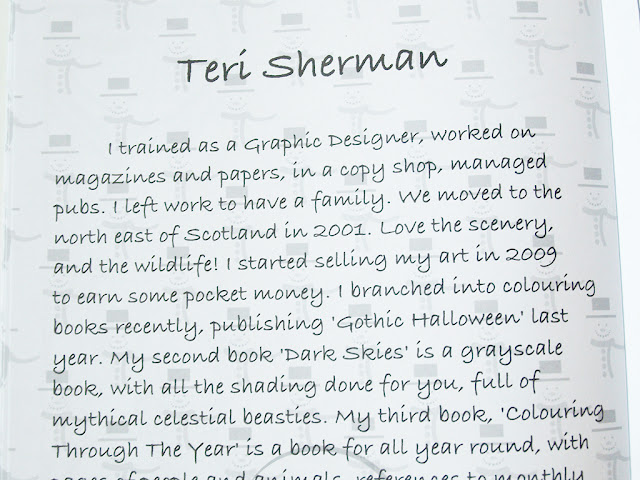 Teri Sherman
I trained as a Graphic Designer, worked on
magazines and papers, in a copy shop, managed
pubs. I left work to have a family. We moved to the
north east of Scotland in 2001. Love the scenery,
and the wildlife! I started selling my art in 2009
to earn some pocket money. I branched into colouring
books recently, publishing 'Gothic Halloween' last
year. My second book 'Dark Skies' is a grayscale
book, with all the shading done for you, full of
mythical celestial beasties. My third book, 'Colouring
Through The Year' is a book for all year round, with
pages of people and animals, references to monthly